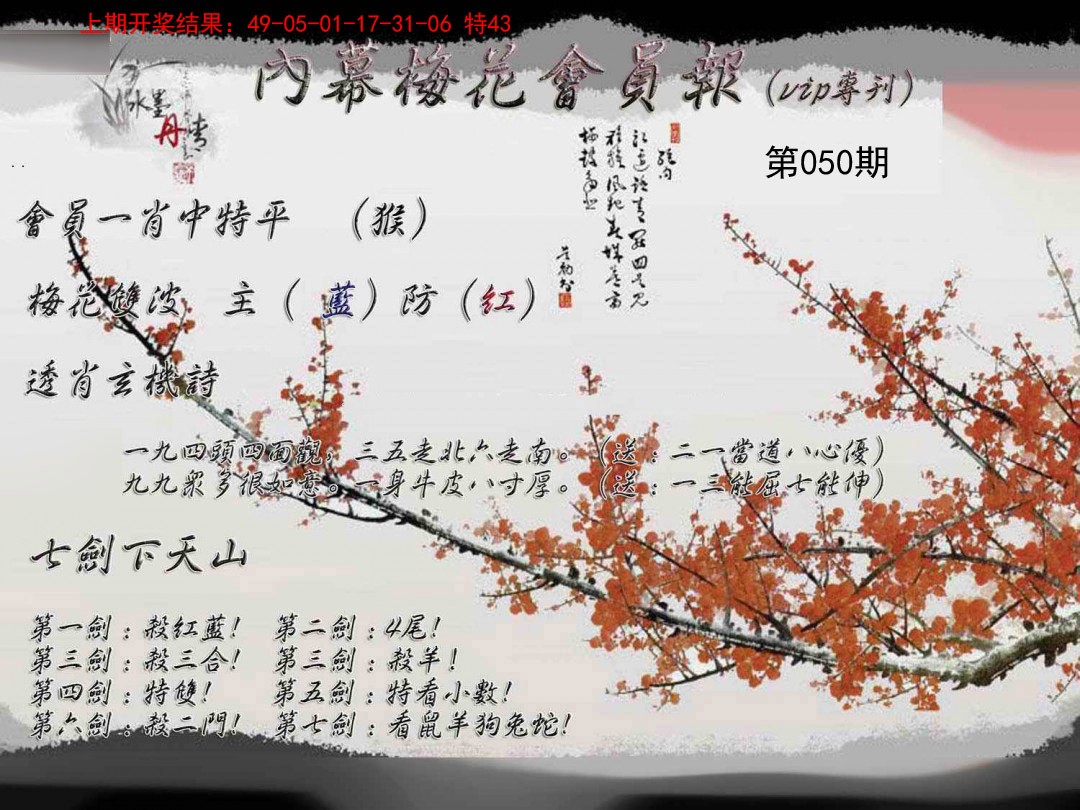 上期开奖结果：49-05-01-17-31-06 特43
內幕梅花會員報（vip專刊）
水墨
丹青
第050期
會員一肖中特平 （猴）
梅花雙波 主（藍）防（红）
透肖玄機詩
一九四頭四面觀，三五走北六走南。（送：二一當道八心優）
九九眾多很如意。一身牛皮八寸厚。（送：一三能屈七能伸）
七劍下天山
第一劍：殺红藍！ 第二劍：4尾！
第三劍：殺三合！ 第三劍：殺羊！
第四劍：特雙！ 第五劍：特看小數！
第六劍：殺二門！ 第七劍：看鼠羊狗兔蛇！